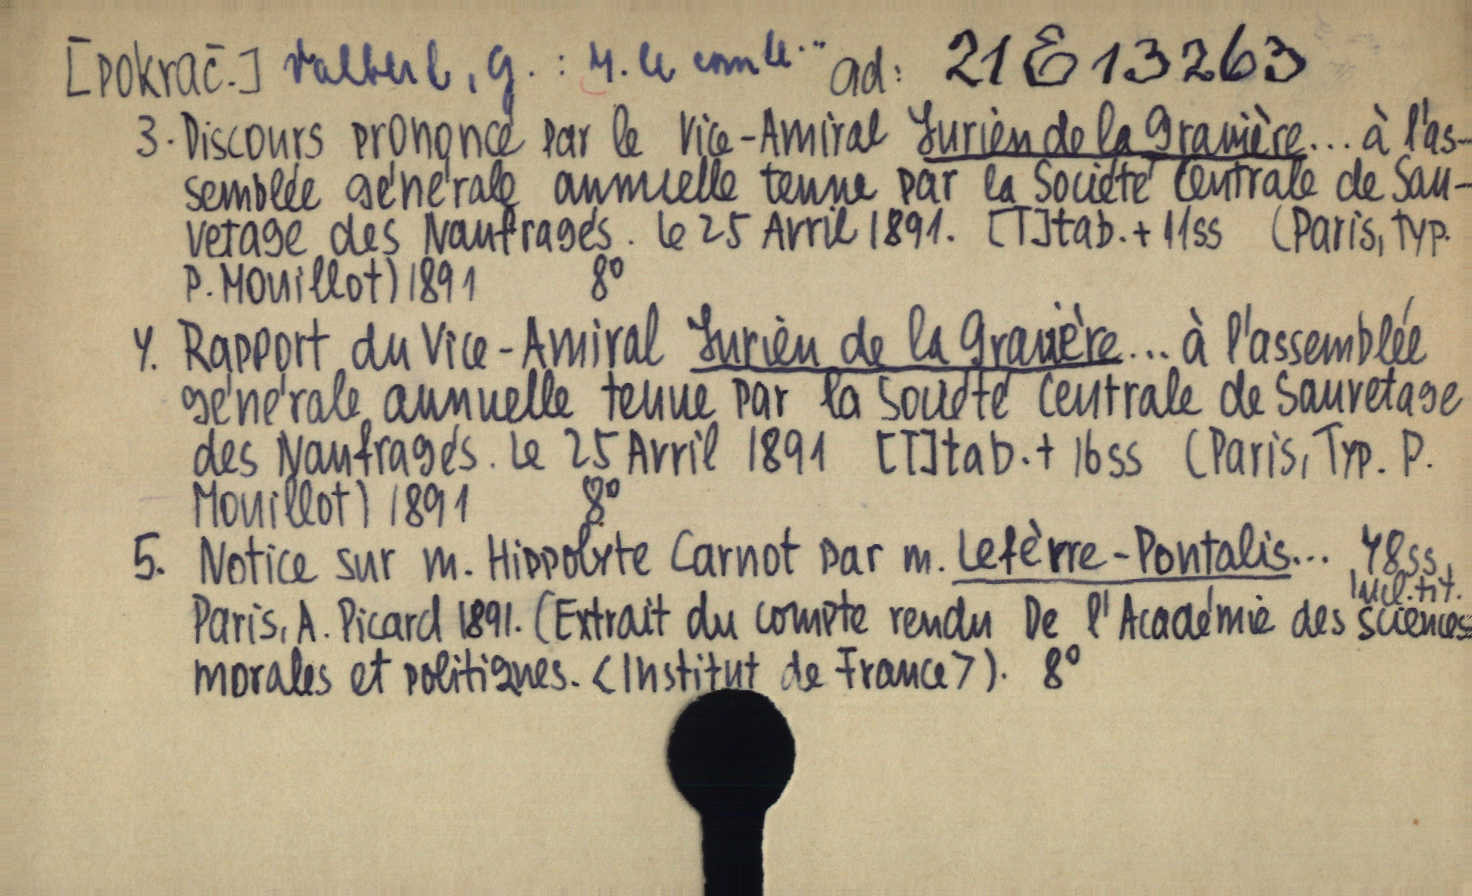 [pokrač.] Valbert, G. : M. le comte... ad: 21 E 13263
3. Discours prononcé par le Vice-Amiral Jurien de la Gravière... à l'as-
semblée générale annuelle tenue par la Société Centrale de Sau-
vetage des Naufragés. Le 25 Avril 1891. [T]tab. + 11ss (Paris, Typ.
P. Mouillot) 1891 8°
4. Rapport du Vice-Amiral Jurien de la Gravière... à l'assemblée
générale annuelle tenue par la Société Centrale de Sauvetage
des Naufragés. Le 25 Avril 1891 [T]tab. + 16ss (Paris, Typ. P.
Mouillot) 1891 8°
5. Notice sur M. Hippolyte Carnot par M. Lefèvre-Pontalis... 48ss,
incl. tit.
Paris, A. Picard 1891. (Extrait du compte rendu De l'Académie des sciences
morales et politiques. <Institut de France>). 8°